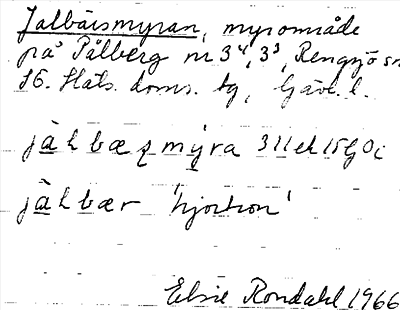 Jalbärsmyran, myrområde
på Pålberg nr 3⁴, 3³, Rengsjö sn
S. Häls. doms. bg, Gävl. l.
jàlbæʂmýra 311
jàlbær 'hjortron'
Elsie Rondahl 1966